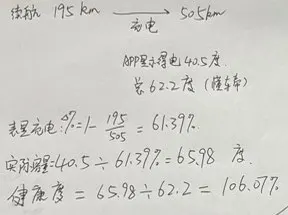 续航 195 km ⟶ 505km
充电
APP显示得电 40.5 度.
总 62.2 度 (懂车帝)
表显充电:Δ%=1- 195/505 = 61.39%.
实际容量=40.5÷61.39%=65.98 度.
健康度 = 65.98÷62.2 = 106.07%